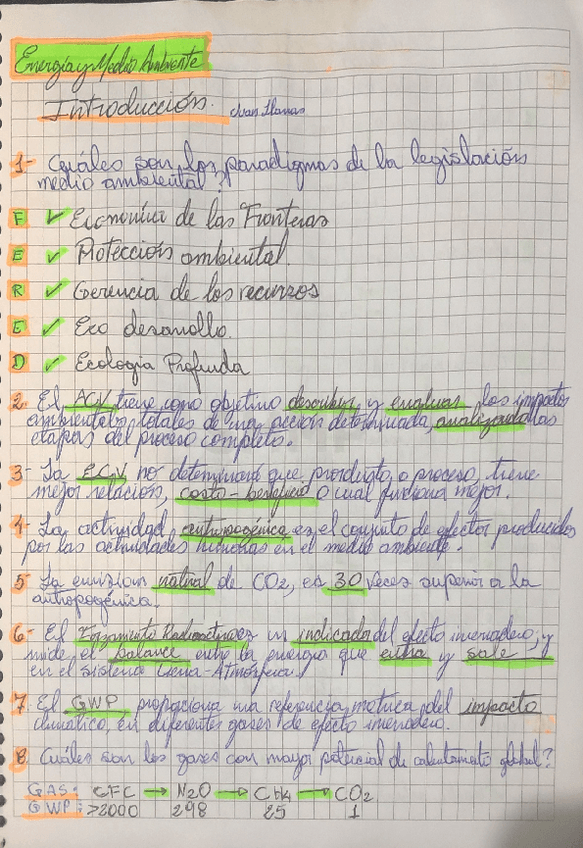 Energía y Medio Ambiente
Introducción. Juan Llanas
1- Cuáles son los paradigmas de la legislación
medio ambiental?
F ✓ Economía de las Fronteras
E ✓ Protección ambiental.
R ✓ Gerencia de los recursos
E ✓ Eco desarrollo.
D ✓ Ecologia Profunda
2- El ACV, tiene como objetivo describir, y evaluar, los impactos
ambientales totales de una acción determinada, analizando las
etapas del proceso completo.
3- La ECV no determinará que producto, o proceso, tiene
mejor relación, costo-beneficio o cual funciona mejor.
4- La actividad, antropogénica es el conjunto de efectos producidos
por las actividades humanas en el medio ambiente.
5- La emision natural de CO2, es 30 veces superior a la
antropogénica.
6- El Forzamiento Radioactivo es un indicador del efecto invernadero, y
mide, el balance entre la energía que entra y sale
en el sistema Tierra-Atmósfera.
7- El GWP, proporciona una referencia metrica, del impacto
climático, en diferentes gases de efecto invernadero.
8- Cuáles son los gases con mayor potencial de calentamiento global?
GAS: CFC → N2O → CH4 → CO2
GWP: >2000 298 25 1